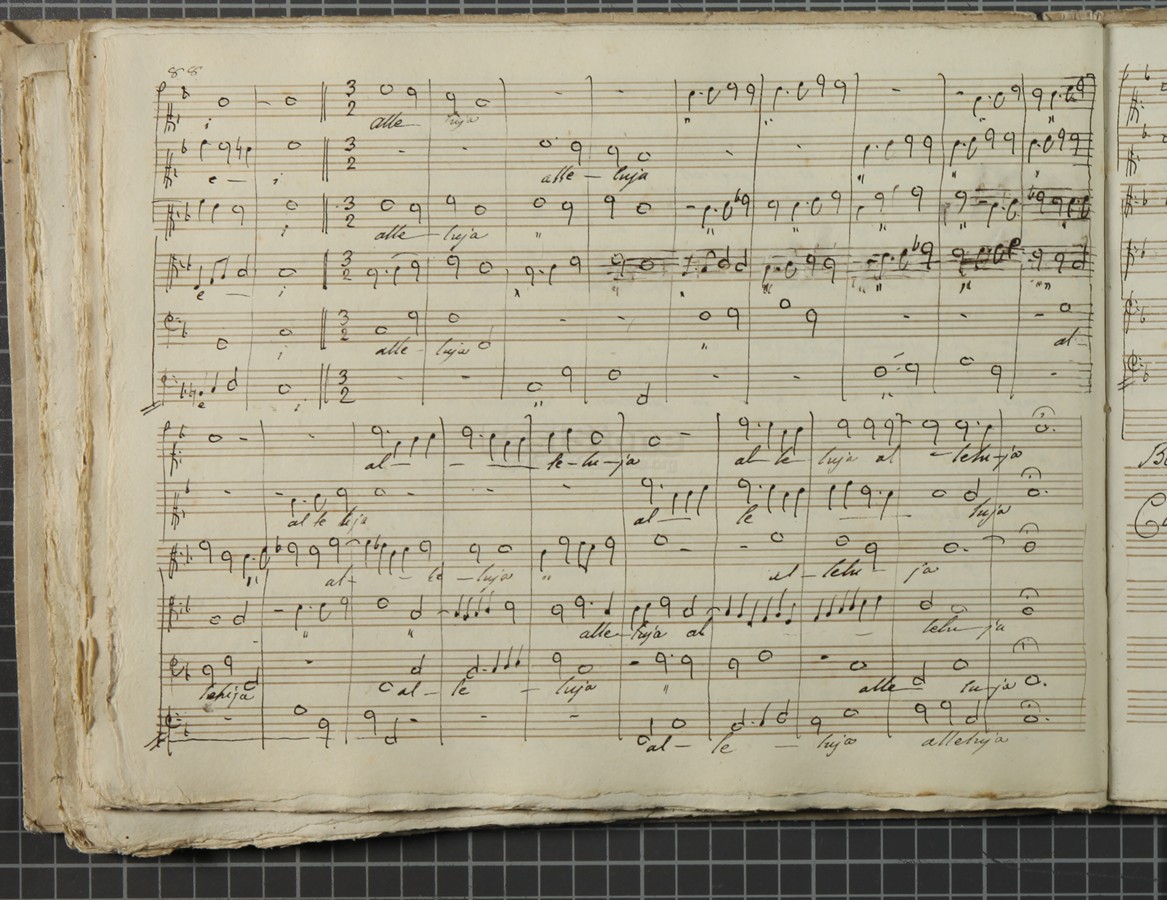 88
3 2
alle luja " " " "
i
3 2
alle – luja " " "
e — i
3 2
alle – luja " " " " "
i
3 2
e — i
3 2
alle – luja " al
i
3 2
e i " "
al — — le – lu – ja al – le luja al – lelu – ja
al le luja al — le — luja
" al – – le – luja " al – lelu – ja
" " alle – luja al — lelu – ja
leluja al – le – luja " alle lu – ja
al – le — luja alleluja